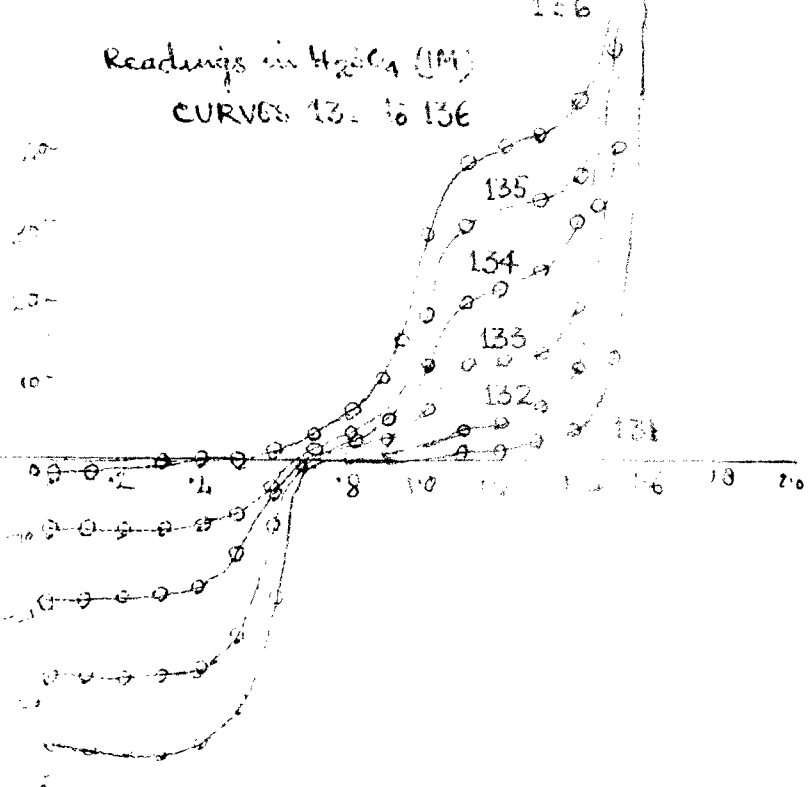 136
Readings in H2SO4 (1M)
CURVES 131 to 136
135
134
20
133
10
132
131
0
·2 ·4 ·8 1·0 1·2 1·4 1·6 1·8 2·0